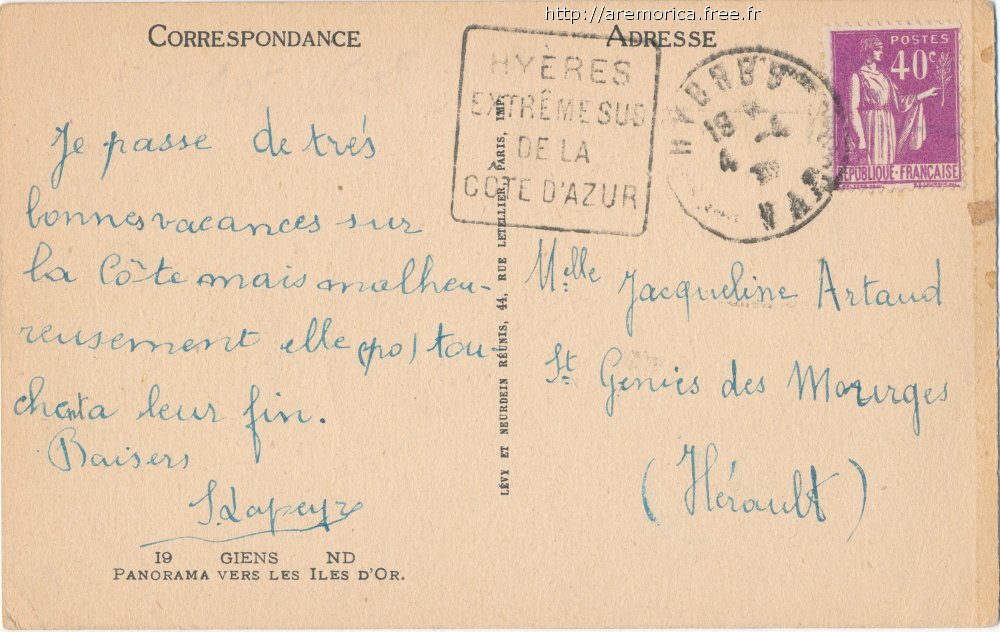 http://aremorica.free.fr
CORRESPONDANCE
Je passe de très
bonnes vacances sur
la Côte mais malheu-
reusement elle (po) tou-
chent a leur fin.
Baisers
S Lapeyr
19 GIENS ND
PANORAMA VERS LES ILES D'OR.
LÉVY ET NEURDEIN RÉUNIS, 44, RUE LETELLIER, PARIS, IMP.
ADRESSE
HYÈRES
EXTRÊME SUD
DE LA
CÔTE D'AZUR
HYERES
19
4
VAR
POSTES
40c
RÉPUBLIQUE-FRANÇAISE
Melle Jacqueline Artaud
St Genies des Mourges
(Hérault)